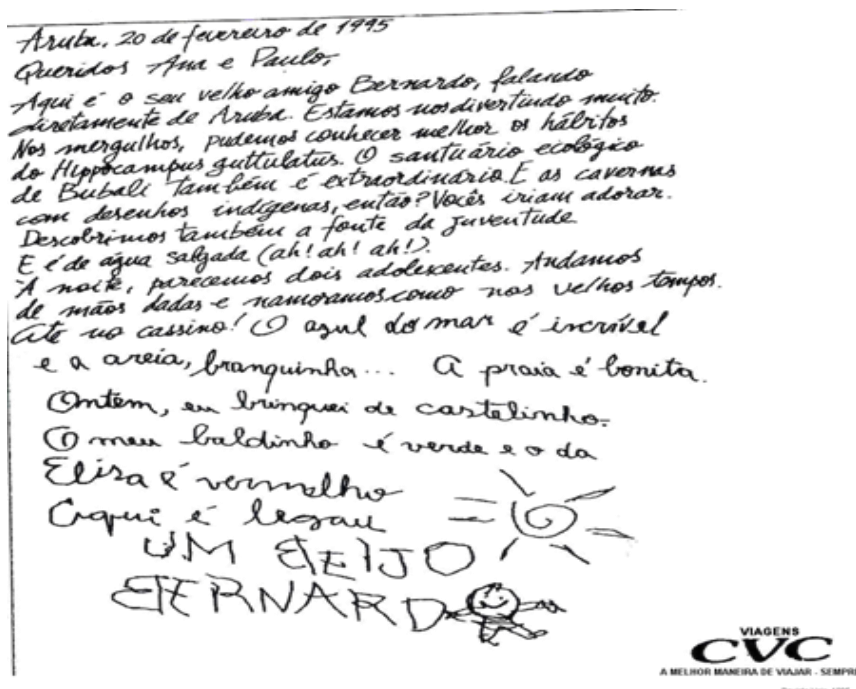 Aruba, 20 de fevereiro de 1995
Queridos Ana e Paulo,
Aqui é o seu velho amigo Bernardo, falando
diretamente de Aruba. Estamos nos divertindo muito.
Nos mergulhos, pudemos conhecer melhor os hábitos
do Hippocampus guttulatus. O santuário ecológico
de Bubali também é extraordinário. E as cavernas
com desenhos indígenas, então? Vocês iriam adorar.
Descobrimos também a fonte da juventude
E é de água salgada (ah! ah! ah!).
À noite, parecemos dois adolescentes. Andamos
de mãos dadas e namoramos como nos velhos tempos.
Até no cassino! O azul do mar é incrível
e a areia, branquinha... A praia é bonita.
Ontem, eu brinquei de castelinho.
O meu baldinho é verde e o da
Elisa é vermelho
Aqui é legau
UM BEIJO
BERNARDO
VIAGENS
CVC
A MELHOR MANEIRA DE VIAJAR - SEMPRE